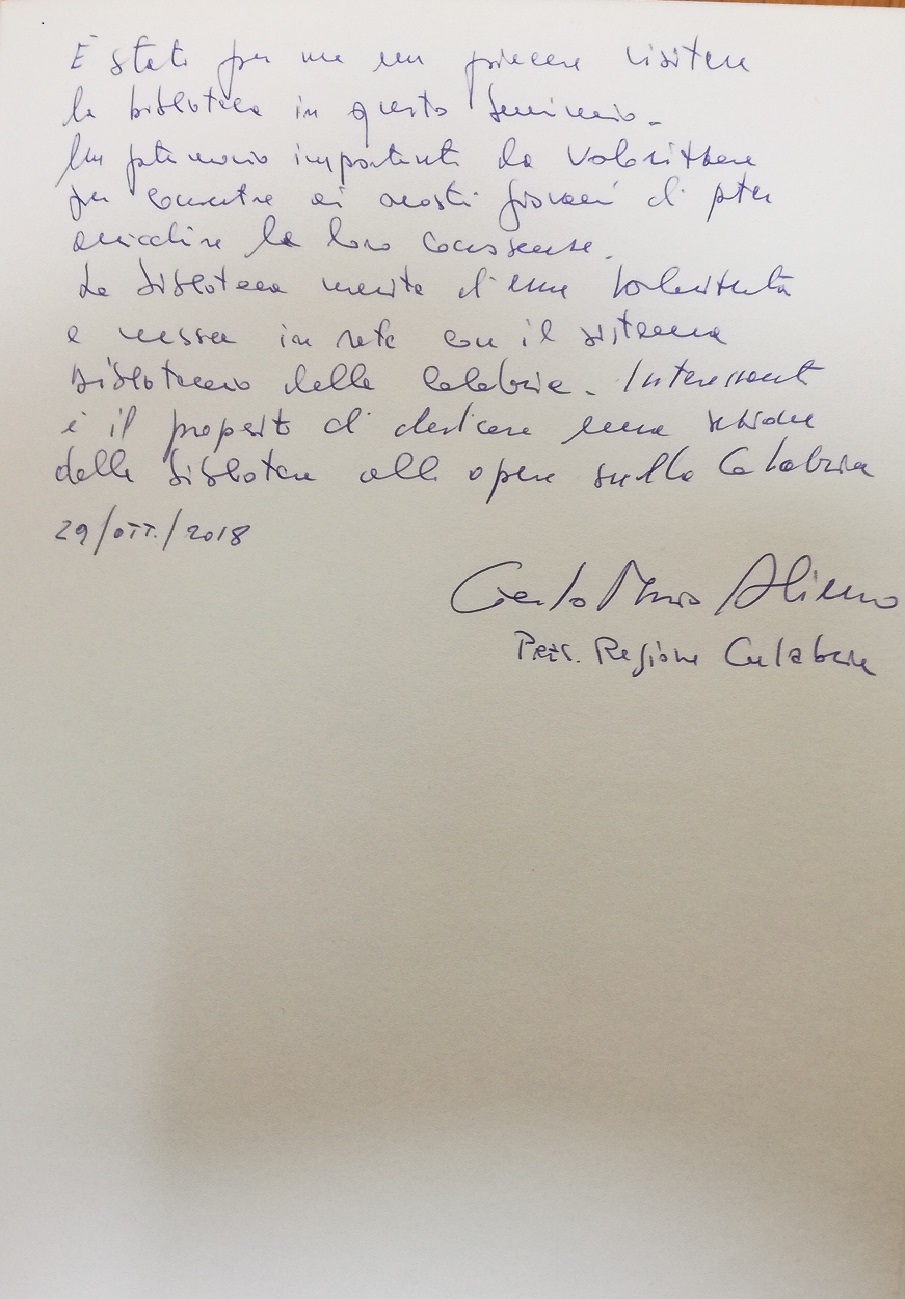 È stato per me un piacere visitare
la biblioteca in questo Seminario.
Un patrimonio importante da valorizzare
per consentire ai nostri giovani di poter
arricchire la loro conoscenza.
La biblioteca merita d'essere valorizzata
e messa in rete con il sistema
bibliotecario della Calabria. Interessante
è il proposito di dedicare una sezione
della biblioteca alle opere sulla Calabria
29/OTT./2018
Gerardo Mario Oliverio
Pres. Regione Calabria